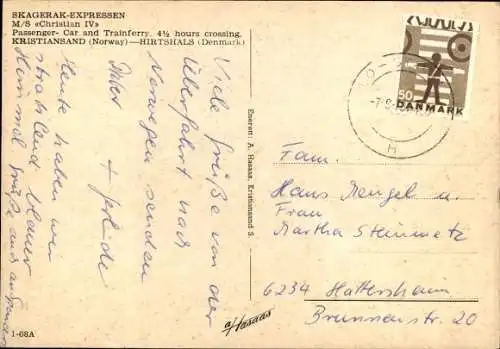 SKAGERAK-EXPRESSEN
M/S «Christian IV»
Passenger- Car and Trainferry. 4½ hours crossing.
KRISTIANSAND (Norway)—HIRTSHALS (Denmark)
Viele Grüße von der
Überfahrt nach
Norwegen senden
Dieter +
Heute haben wir
strahlend blauen
Himmel Grüße aus
1-68A
Enerett: A. Hasaas, Kristiansand S.
a/Hasaas
50 DANMARK
Fam.
Hans Mengel u.
Frau
Martha Steinmetz
6234 Hattersheim
Brunnenstr. 20